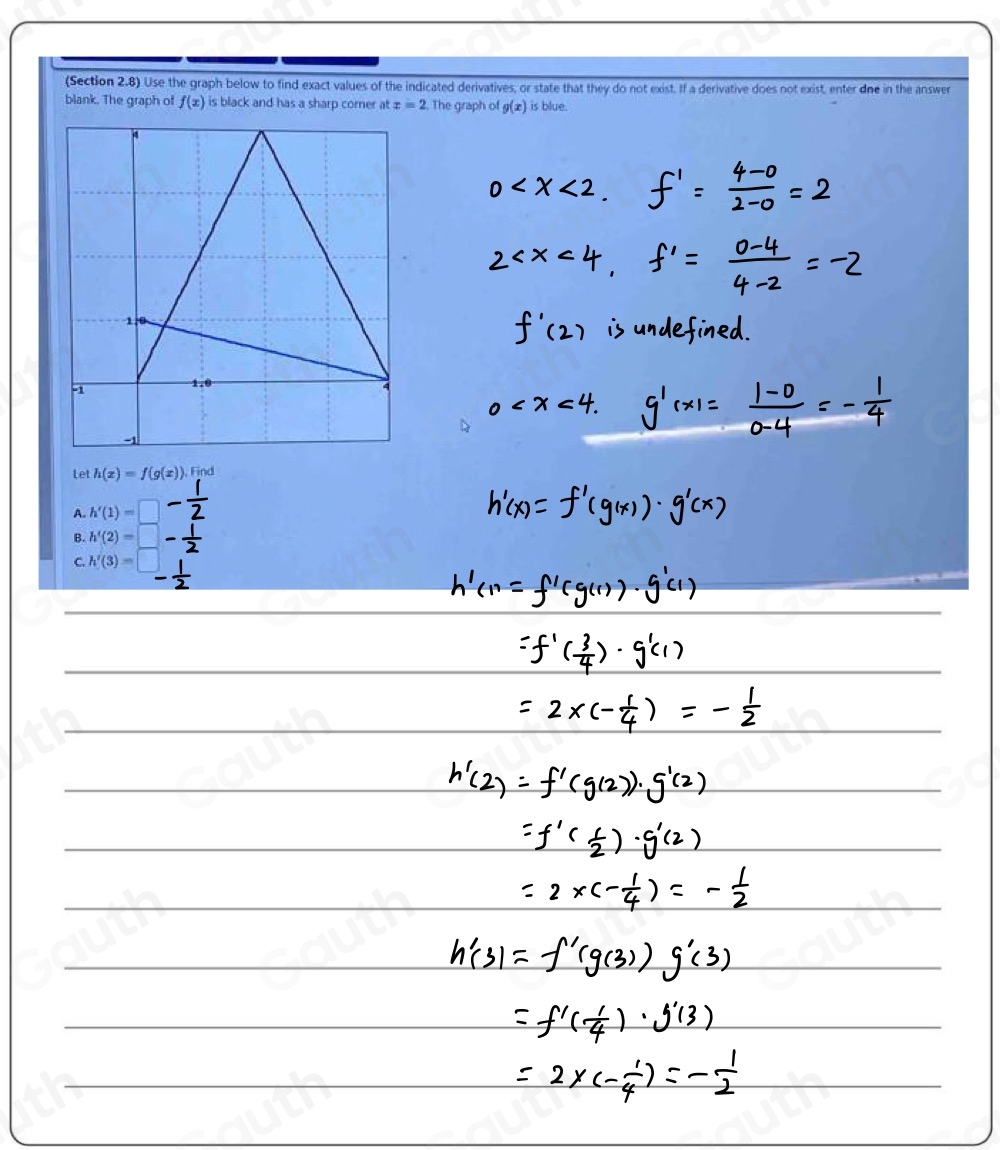 (Section 2.8) Use the graph below to find exact values of the indicated derivatives, or state that they do not exist. If a derivative does not exist, enter dne in the answer
blank. The graph of f(x) is black and has a sharp corner at x = 2. The graph of g(x) is blue.
4
1.0
-1
1.0
4
-1
0 < x < 2. f' = \frac{4-0}{2-0} = 2
2 < x < 4, f' = \frac{0-4}{4-2} = -2
f'(2) is undefined.
0 < x < 4. g'(x) = \frac{1-0}{0-4} = -\frac{1}{4}
Let h(x) = f(g(x)). Find
A. h'(1) = -\frac{1}{2}
B. h'(2) = -\frac{1}{2}
C. h'(3) = -\frac{1}{2}
h'(x) = f'(g(x)) · g'(x)
h'(1) = f'(g(1)) · g'(1)
= f'(\frac{3}{4}) · g'(1)
= 2 × (-\frac{1}{4}) = -\frac{1}{2}
h'(2) = f'(g(2)) · g'(2)
= f'(\frac{1}{2}) · g'(2)
= 2 × (-\frac{1}{4}) = -\frac{1}{2}
h'(3) = f'(g(3)) g'(3)
= f'(\frac{1}{4}) · g'(3)
= 2 × (-\frac{1}{4}) = -\frac{1}{2}
Gauth